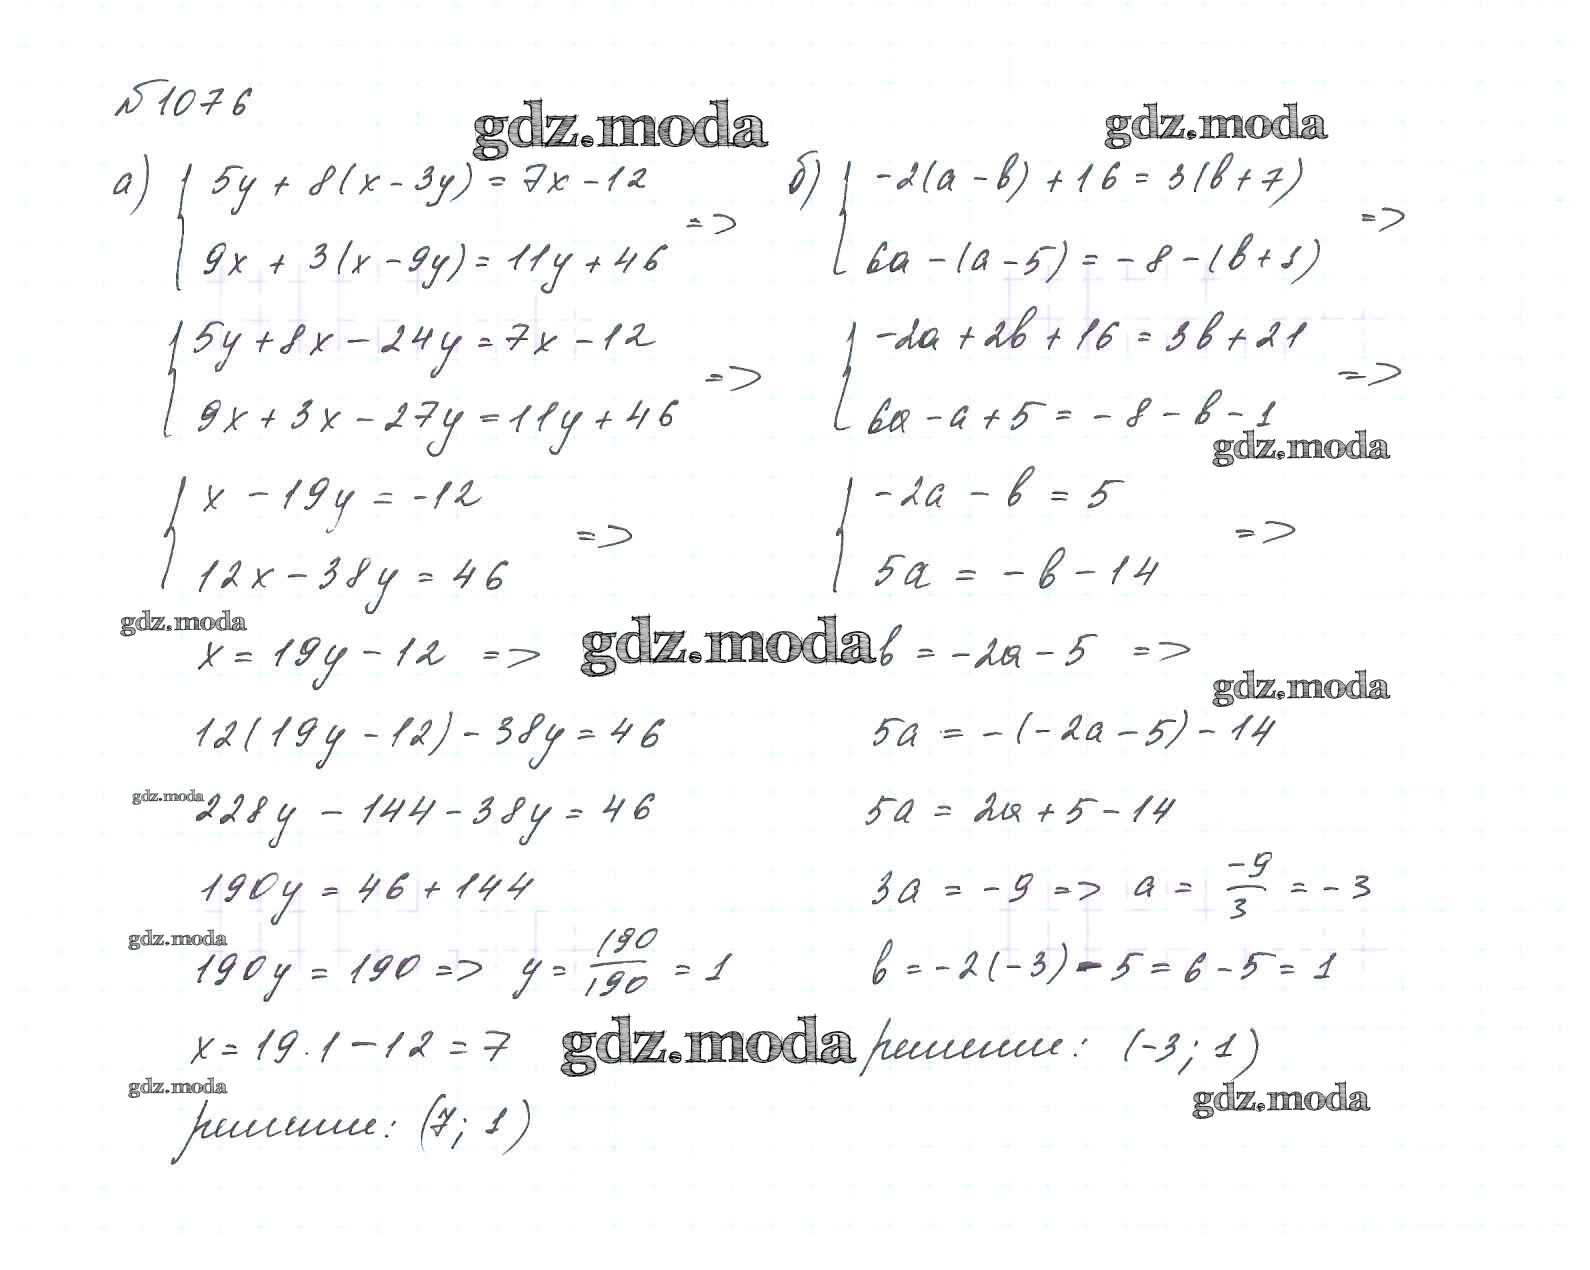 №1076
gdz.moda
gdz.moda
а) { 5y + 8(x - 3y) = 7x - 12
9x + 3(x - 9y) = 11y + 46 =>
{ 5y + 8x - 24y = 7x - 12
9x + 3x - 27y = 11y + 46 =>
{ x - 19y = -12
12x - 38y = 46 =>
gdz.moda
x = 19y - 12 =>
12(19y - 12) - 38y = 46
gdz.moda
228y - 144 - 38y = 46
190y = 46 + 144
gdz.moda
190y = 190 => y = 190/190 = 1
x = 19 · 1 - 12 = 7
gdz.moda
решение: (7; 1)
б) { -2(a - b) + 16 = 3(b + 7)
6a - (a - 5) = -8 - (b + 1) =>
{ -2a + 2b + 16 = 3b + 21
6a - a + 5 = -8 - b - 1 =>
gdz.moda
{ -2a - b = 5
5a = -b - 14 =>
gdz.moda
b = -2a - 5 =>
gdz.moda
5a = -(-2a - 5) - 14
5a = 2a + 5 - 14
3a = -9 => a = -9/3 = -3
b = -2(-3) - 5 = 6 - 5 = 1
gdz.moda
решение: (-3; 1)
gdz.moda